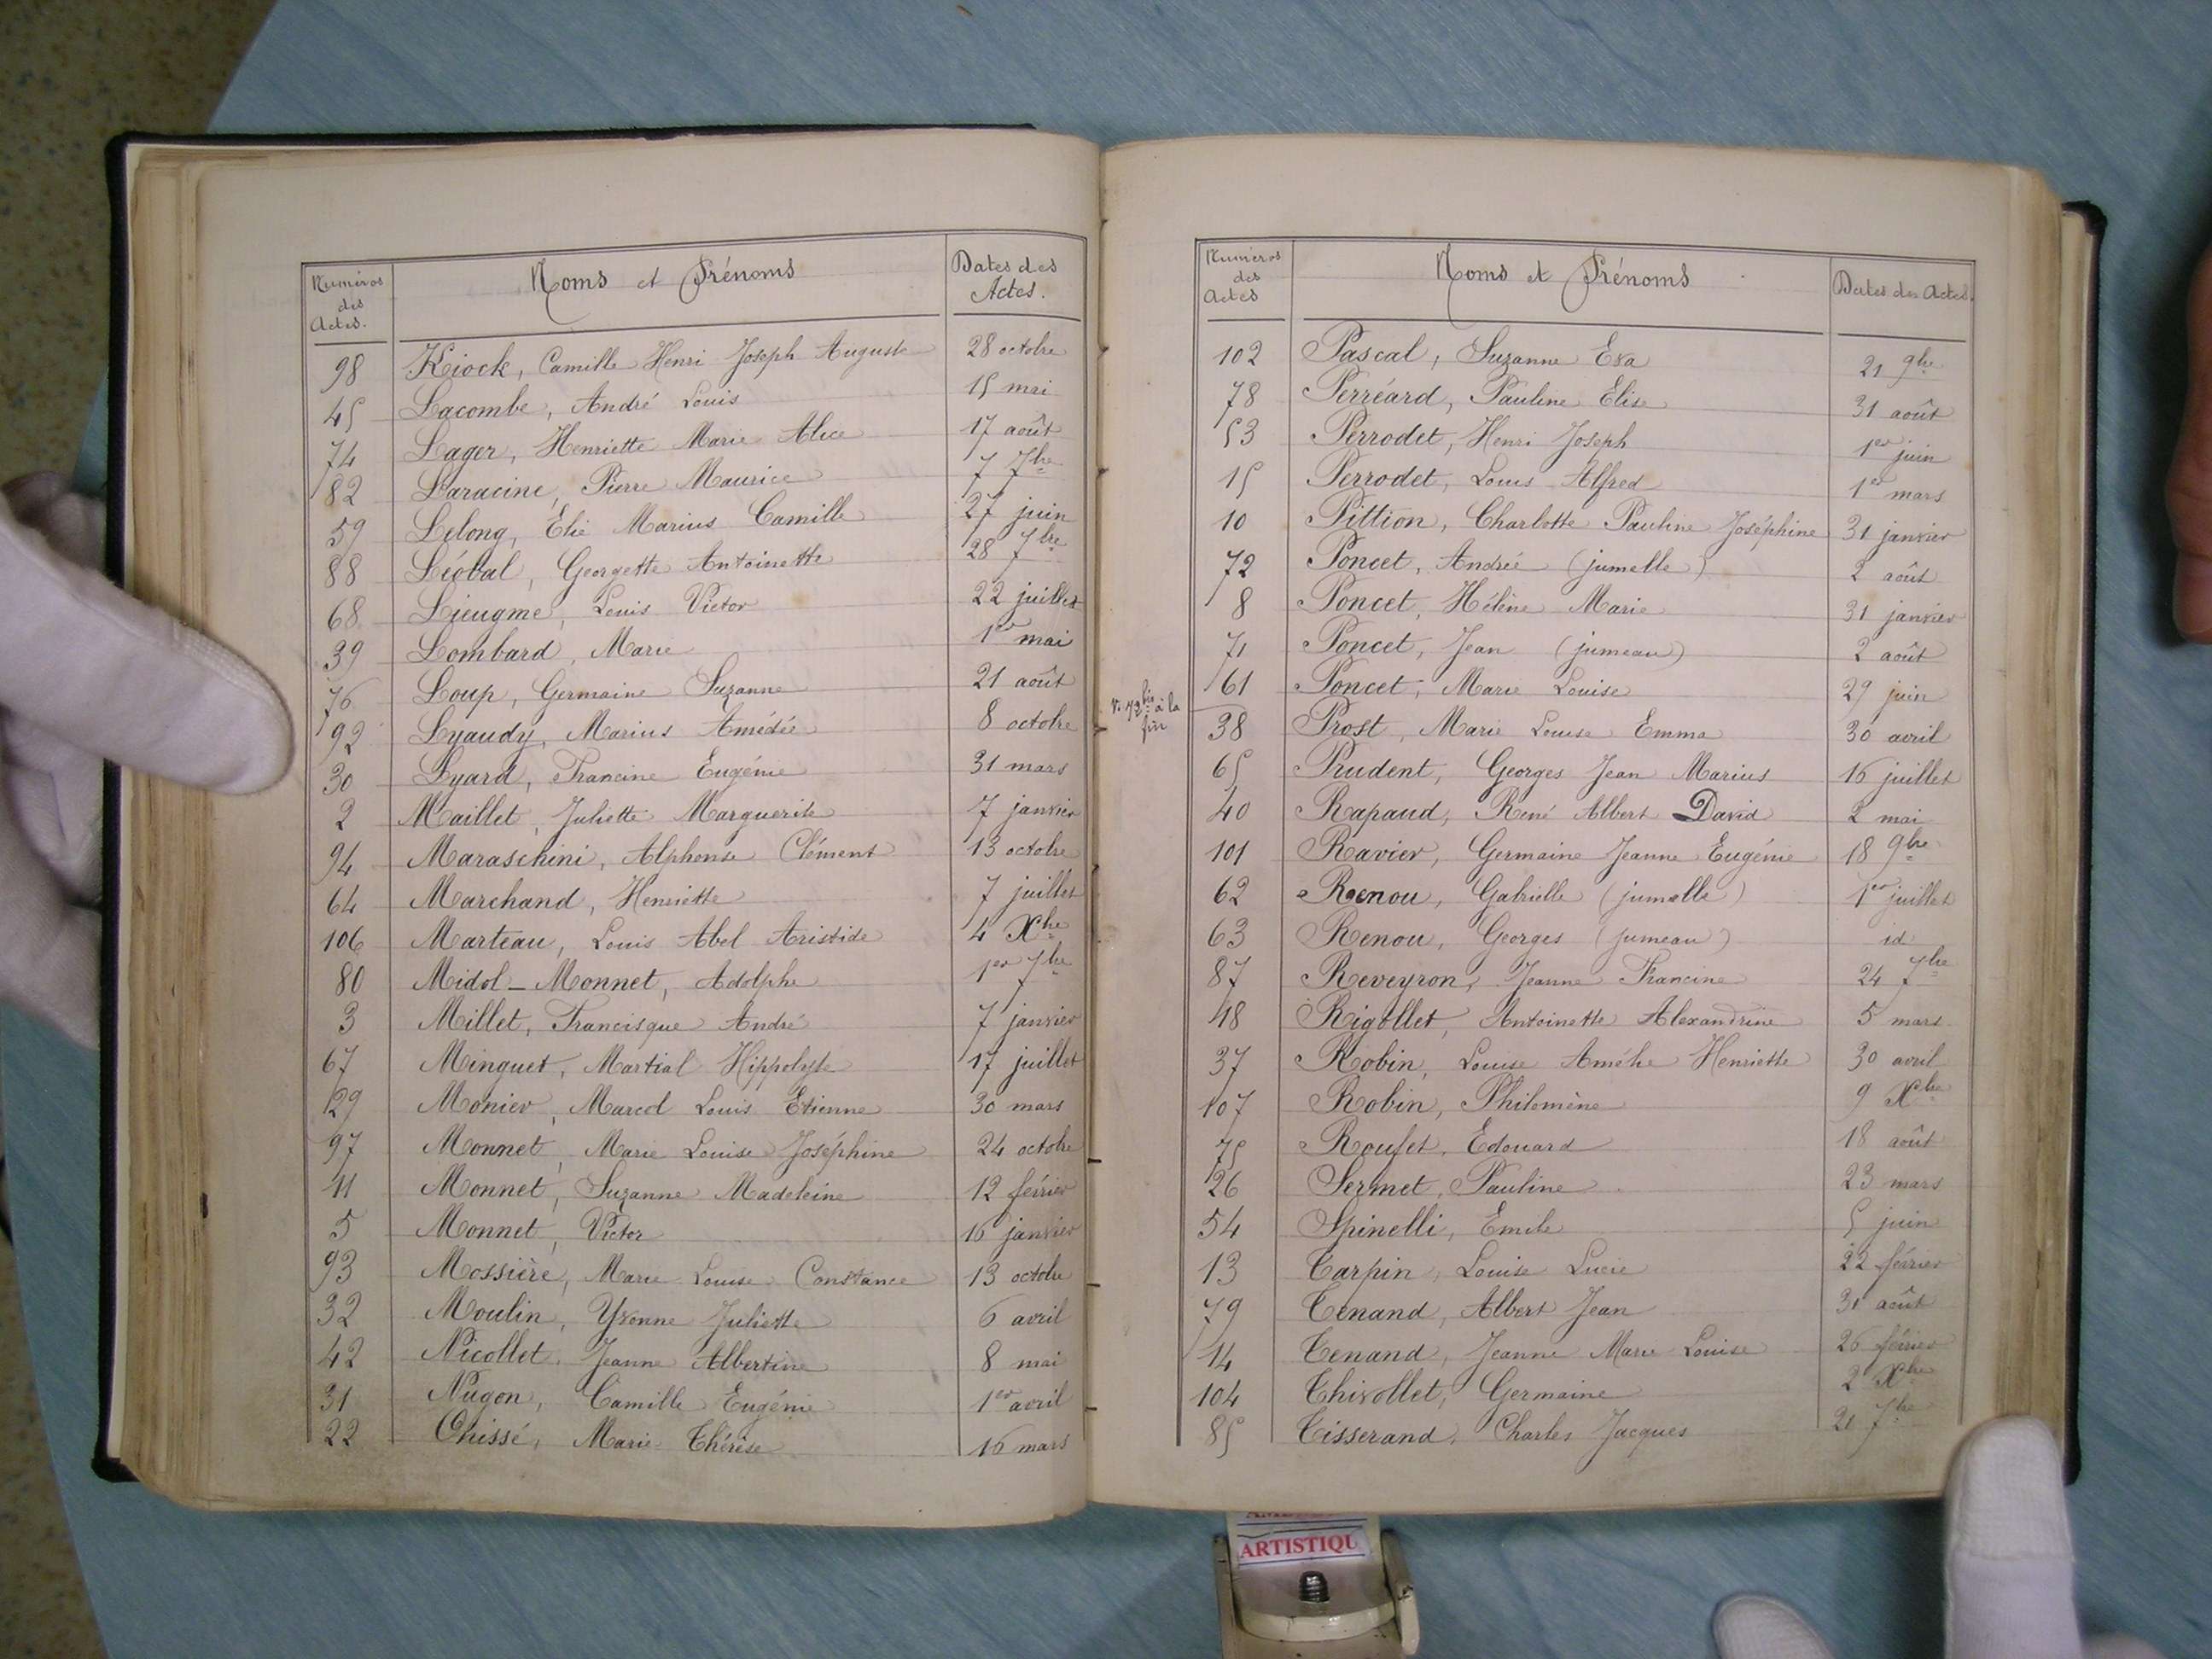 Numéros des Actes. Noms et Prénoms Dates des Actes.
98 Kiock, Camille Henri Joseph Auguste 28 octobre
45 Lacombe, André Louis 15 mai
74 Lager, Henriette Marie Alice 17 août
82 Laracine, Pierre Maurice 7 7bre
59 Lelong, Elie Marius Camille 27 juin
88 Léobal, Georgette Antoinette 28 7bre
68 Lieugme, Louis Victor 22 juillet
39 Lombard, Marie 1er mai
76 Loup, Germaine Suzanne 21 août
92 Lyaudy, Marius Amédée 8 octobre
30 Lyard, Francine Eugénie 31 mars
2 Maillet, Juliette Marguerite 7 janvier
94 Maraschini, Alphonse Clément 13 octobre
64 Marchand, Henriette 7 juillet
106 Marteau, Louis Abel Aristide 4 Xbre
80 Midol-Monnet, Adolphe 1er 7bre
3 Millet, Francisque André 7 janvier
67 Minguet, Martial Hippolyte 17 juillet
29 Monier, Marcel Louis Etienne 30 mars
97 Monnet, Marie Louise Joséphine 24 octobre
11 Monnet, Suzanne Madeleine 12 février
5 Monnet, Victor 16 janvier
93 Mossière, Marie Louise Constance 13 octobre
32 Moulin, Yvonne Juliette 6 avril
42 Nicollet, Jeanne Albertine 8 mai
31 Nugon, Camille Eugénie 1er avril
22 Ohissé, Marie Thérèse 16 mars
Numéros des Actes Noms et Prénoms Dates des Actes.
102 Pascal, Suzanne Eva 21 9bre
78 Perréard, Pauline Elise 31 août
53 Perrodet, Henri Joseph 1er juin
15 Perrodet, Louis Alfred 1er mars
10 Pittion, Charlotte Pauline Joséphine 31 janvier
72 Poncet, Andrée (jumelle) 2 août
8 Poncet, Hélène Marie 31 janvier
71 Poncet, Jean (jumeau) 2 août
61 Poncet, Marie Louise 29 juin
No 73bis à la fin
38 Prost, Marie Louise Emma 30 avril
65 Prudent, Georges Jean Marius 16 juillet
40 Rapaud, René Albert David 2 mai
101 Ravier, Germaine Jeanne Eugénie 18 9bre
62 Renou, Gabrielle (jumelle) 1er juillet
63 Renou, Georges (jumeau) id
87 Reveyron, Jeanne Francine 24 7bre
18 Rigollet, Antoinette Alexandrine 5 mars
37 Robin, Louise Amélie Henriette 30 avril
107 Robin, Philomène 9 Xbre
75 Roufet, Edouard 18 août
26 Sermet, Pauline 23 mars
54 Spinelli, Emile 5 juin
13 Tarpin, Louise Lucie 22 février
79 Tenand, Albert Jean 31 août
14 Tenand, Jeanne Marie Louise 26 février
104 Thivollet, Germaine 2 Xbre
85 Tisserand, Charles Jacques 21 7bre
ARTISTIQU